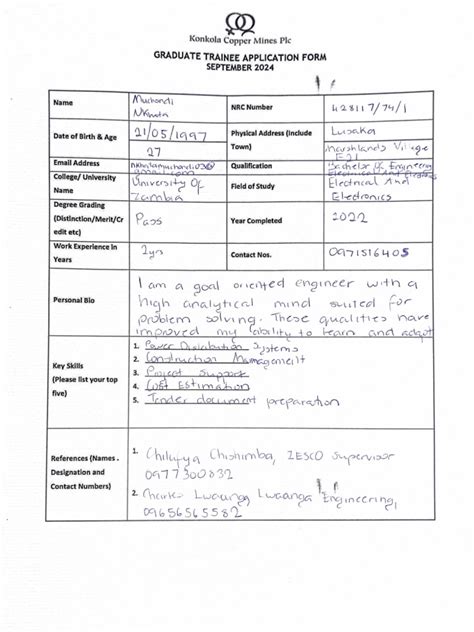 Konkola Copper Mines Plc
GRADUATE TRAINEE APPLICATION FORM
SEPTEMBER 2024
Name
Muchandi
Nkhata
NRC Number
428117/74/1
Date of Birth & Age
21/05/1997
27
Physical Address (Include
Town)
Lusaka
Marshlands Village
E21
Email Address
Qualification
Bachelor Of Engineering
Electrical And
College/ University
Name
University Of
Zambia
Field of Study
Electrical And
Electronics
Degree Grading
(Distinction/Merit/Cr
edit etc)
Pass
Year Completed
2022
Work Experience in
Years
2yrs
Contact Nos.
0971516405
Personal Bio
I am a goal oriented engineer with a
high analytical mind suited for
problem solving. These qualities have
improved my ability to learn and adapt
Key Skills
(Please list your top
five)
1. Power Distribution Systems
2. Construction Management
3. Project Support
4. Cost Estimation
5. Tender document preparation
References (Names ,
Designation and
Contact Numbers)
1. Chilufya Chishimba, ZESCO Supervisor
0977300832
2. Lwaanga Engineering,
09656565582